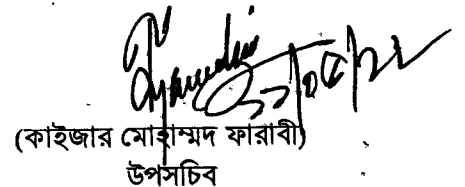 (কাইজার মোহাম্মদ ফারাবী)
উপসচিব